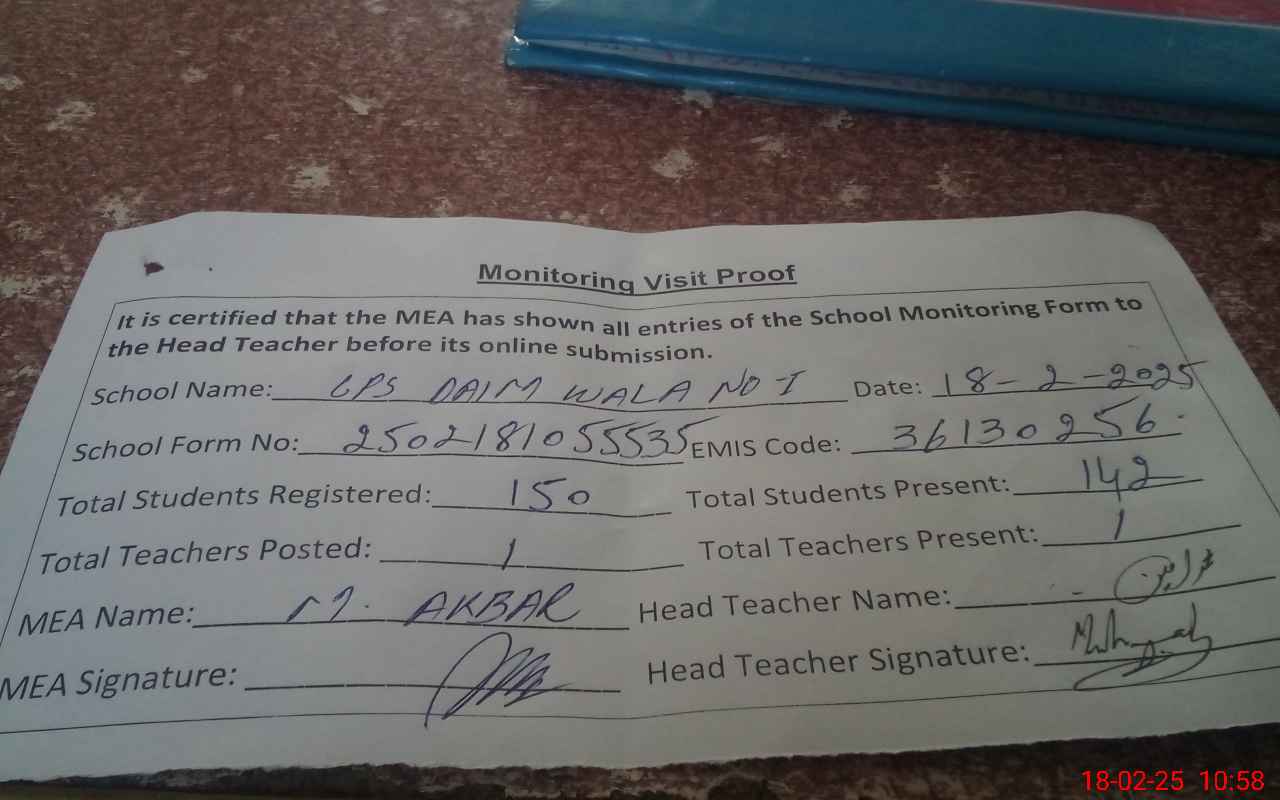 Monitoring Visit Proof
It is certified that the MEA has shown all entries of the School Monitoring Form to
the Head Teacher before its online submission.
School Name: GPS DAIM WALA NO I Date: 18-2-2025
School Form No: 2502181055535 EMIS Code: 36130256
Total Students Registered: 150 Total Students Present: 142
Total Teachers Posted: 1 Total Teachers Present: 1
MEA Name: M. AKBAR Head Teacher Name:
MEA Signature: Head Teacher Signature:
18-02-25 10:58